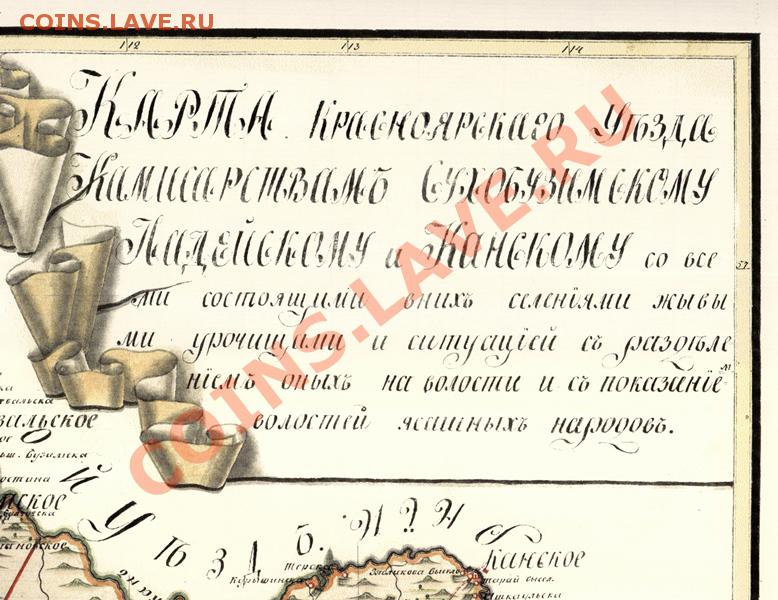 COINS.LAVE.RU
112
113
114
Карта Красноярскаго Уѣзда
Камисарствамъ Сухобузимскому
Надейскому и Канскому со все
57
ми состоящими вних селенїями жывы
ми урочищами и ситуацїей съ раздѣле
нїемъ оныхъ на волости и съ показенїе
м
волостей ясашныхъ народовъ.
COINS.LAVE.RU
ОЙ УѢЗДЪ.
Канское